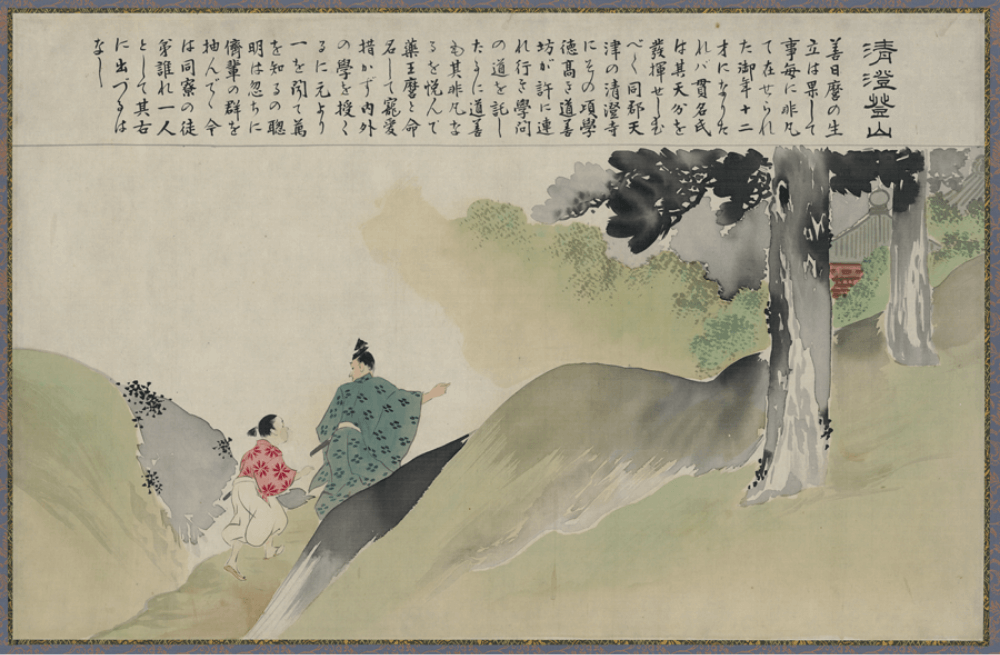 清澄登山
善日麿の生
立は果して
事毎に非凡
て在せられ
た御年十二
才になりた
れバ貫名氏
は其天分を
發揮せしむ
べく同郡天
津の清澄寺
にその頃學
徳高き道善
坊が許に連
れ行き學問
の道を託し
たるに道善
も其非凡な
るを悦んで
藥王麿と命
名して寵愛
措かず内外
の學を授く
るに元より
一を聞て萬
を知るの聰
明は忽ちに
儕輩の群を
抽んで、今
は同寮の徒
弟誰れ一人
として其右
に出づるは
なし